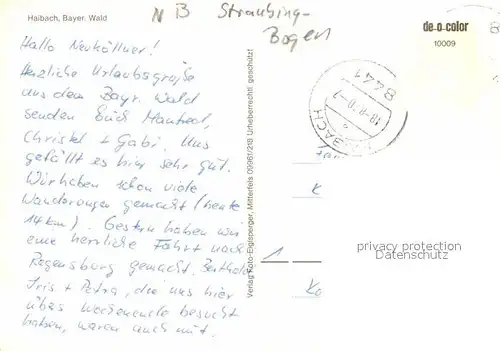 Haibach, Bayer. Wald
N B Straubing-
Bogen
de-o-color
10009
Hallo Neuköllner!
Herzliche Urlaubsgrüße
aus dem Bayr. Wald
senden Euch Manfred,
Christel + Gabi. Uns
gefällt es hier sehr gut.
Wir haben schon viele
Wanderungen gemacht (heute
14 km). Gestern haben wir
eine herrliche Fahrt nach
Regensburg gemacht. Berthold,
Iris + Petra, die uns hier
übers Wochenende besucht
haben, waren auch mit.
Verlag Foto-Eiglsperger, Mitterfels 09961/213 Urheberrechtl. geschützt
8441
HAIBACH
1
K
Ko
privacy protection
Datenschutz